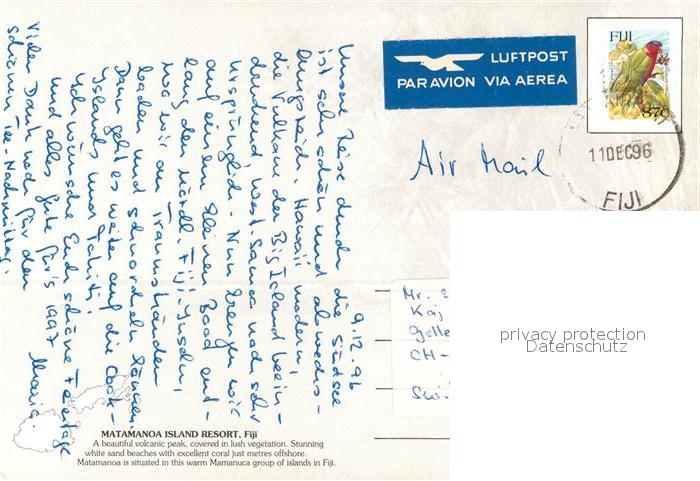 9.12.96
Unsere Reise durch die Südsee
ist sehr schön und abwechs-
lungsreich. Hawaii modern,
die Vulkane der Big Island beein-
druckend, West Samoa noch sehr
ursprünglich. Nun kreuzen wir
auf einem kleinen Boot ent-
lang den nördl. Fiji-Inseln,
wo wir an Traumstränden
baden und schnorcheln können.
Dann geht es weiter auf die Cook-
Islands und Tahiti!
Ich wünsche Euch schöne Festtage
und alles Gute für's 1997
Vielen Dank noch für den
schönen Tee-Nachmittag.
MATAMANOA ISLAND RESORT, Fiji
A beautiful volcanic peak, covered in lush vegetation. Stunning
white sand beaches with excellent coral just metres offshore.
Matamanoa is situated in this warm Mamanuca group of islands in Fiji.
LUFTPOST
PAR AVION VIA AEREA
Air Mail
FIJI
87c
11DEC96
FIJI
Mr.
Kaj
Gelle
CH-
privacy protection
Datenschutz